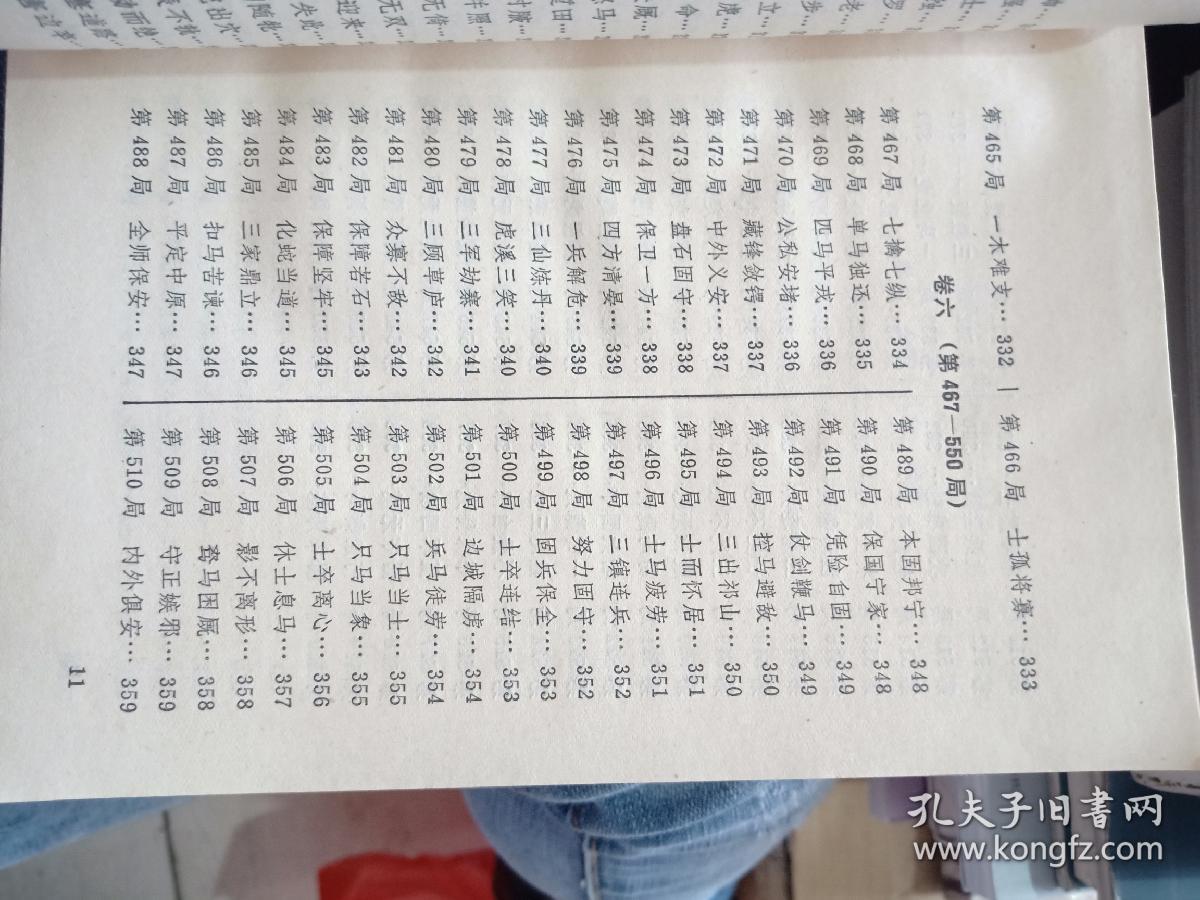 第465局 一木难支… 332
第466局 士孤将寡… 333
卷六（第467—550局）
第467局 七擒七纵… 334
第468局 单马独还… 335
第469局 匹马平戎… 336
第470局 公私安堵… 336
第471局 藏锋敛锷… 337
第472局 中外义安… 337
第473局 盘石固守… 338
第474局 保卫一方… 338
第475局 四方清晏… 339
第476局 一兵解危… 339
第477局 三仙炼丹… 340
第478局 虎溪三笑… 340
第479局 三军劫寨… 341
第480局 三顾草庐… 342
第481局 众寡不敌… 342
第482局 保障若石… 343
第483局 保障坚牢… 345
第484局 化蛇当道… 345
第485局 三家鼎立… 346
第486局 扣马苦谏… 346
第487局 平定中原… 347
第488局 全师保安… 347
第489局 本固邦宁… 348
第490局 保国宁家… 348
第491局 凭险自固… 349
第492局 仗剑鞭马… 349
第493局 控马避敌… 350
第494局 三出祁山… 350
第495局 士而怀居… 351
第496局 士马疲劳… 351
第497局 三镇连兵… 352
第498局 努力固守… 352
第499局 固兵保全… 353
第500局 士卒连结… 353
第501局 边城隔虏… 354
第502局 兵马徒劳… 354
第503局 只马当士… 355
第504局 只马当象… 355
第505局 士卒离心… 356
第506局 休士息马… 357
第507局 影不离形… 358
第508局 驽马困厩… 358
第509局 守正嫉邪… 359
第510局 内外俱安… 359
11
孔夫子旧书网
www.kongfz.com